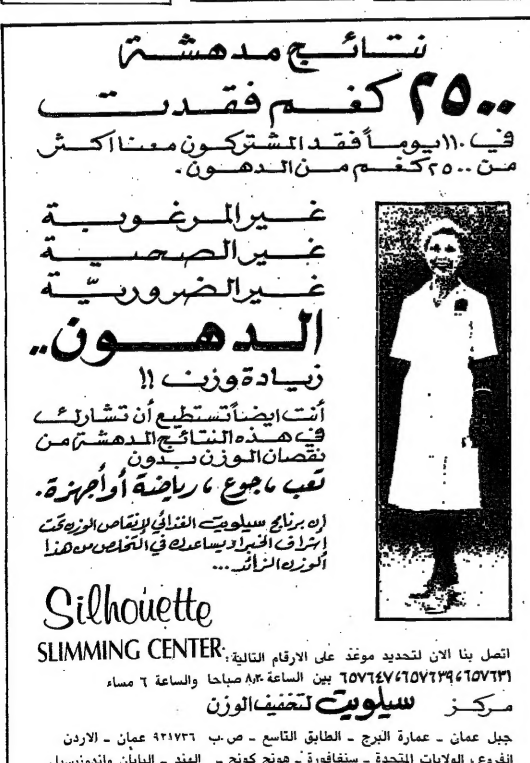 نتائج مدهشة
٢٥٠٠ كغم فقدت
في ١١٠ يوماً فقد المشتركون معنا اكثر
من ٢٥٠٠ كغم من الدهون.
غير المرغوبة
غير الصحية
غير الضروريّة
الدهون..
زيادة وزن !!
أنت ايضاً تستطيع أن تشارك
في هذه النتائج المدهشة من
نقصان الوزن بدون
تعب، جوع، رياضة أو أجهزة.
إن برنامج سيلويت الغذائي لإنقاص الوزن تحت
إشراف الخبراء يساعدك في التخلص من هذا
الوزن الزائد ...
Silhouette
SLIMMING CENTER
اتصل بنا الان لتحديد موعد على الارقام التالية:
٦٥٧٦٤٧،٦٥٧٦٣٩،٦٥٧٦٣١ بين الساعة ٨،٣٠ صباحا والساعة ٦ مساء
مركز سيلويت لتخفيف الوزن
جبل عمان - عمارة البرج - الطابق التاسع - ص.ب ٩٢١٧٣٦ عمان - الاردن
الفروع: الولايات المتحدة - سنغافورة - هونج كونج - الهند - اليابان واندونيسيا.